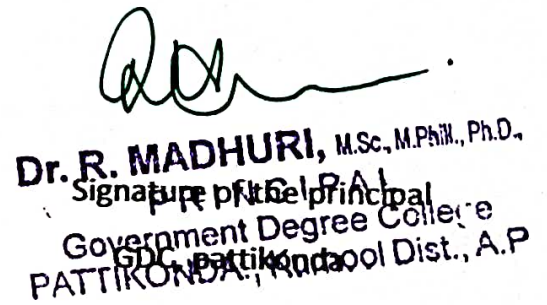 Dr. R. MADHURI, M.Sc., M.Phil., Ph.D.,
PRINCIPAL
Signature of the principal
Government Degree College
GDC, pattikonda.
PATTIKONDA., Kurnool Dist., A.P